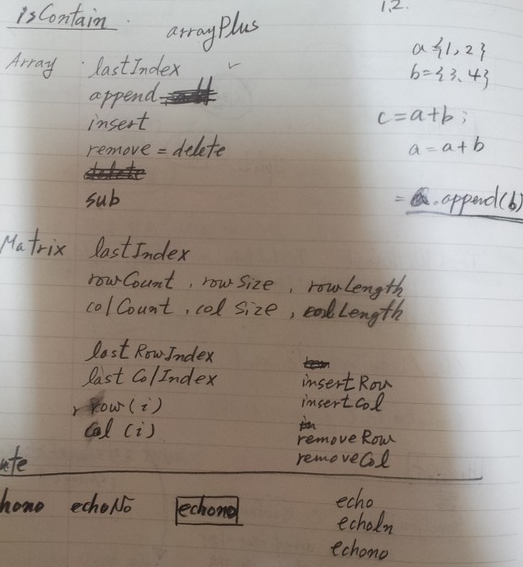 isContain
arrayPlus
1,2.
a {1, 2}
b={3, 4}
c = a + b ;
a = a + b
= a.append(b)
Array
lastIndex
append
insert
remove = delete
delete
sub
Matrix
lastIndex
rowCount , rowSize , rowLength
colCount , colSize , colLength
last RowIndex
last ColIndex
row (i)
col (i)
insertRow
insertCol
removeRow
removeCol
echoNo
echono
echo
echoln
echono